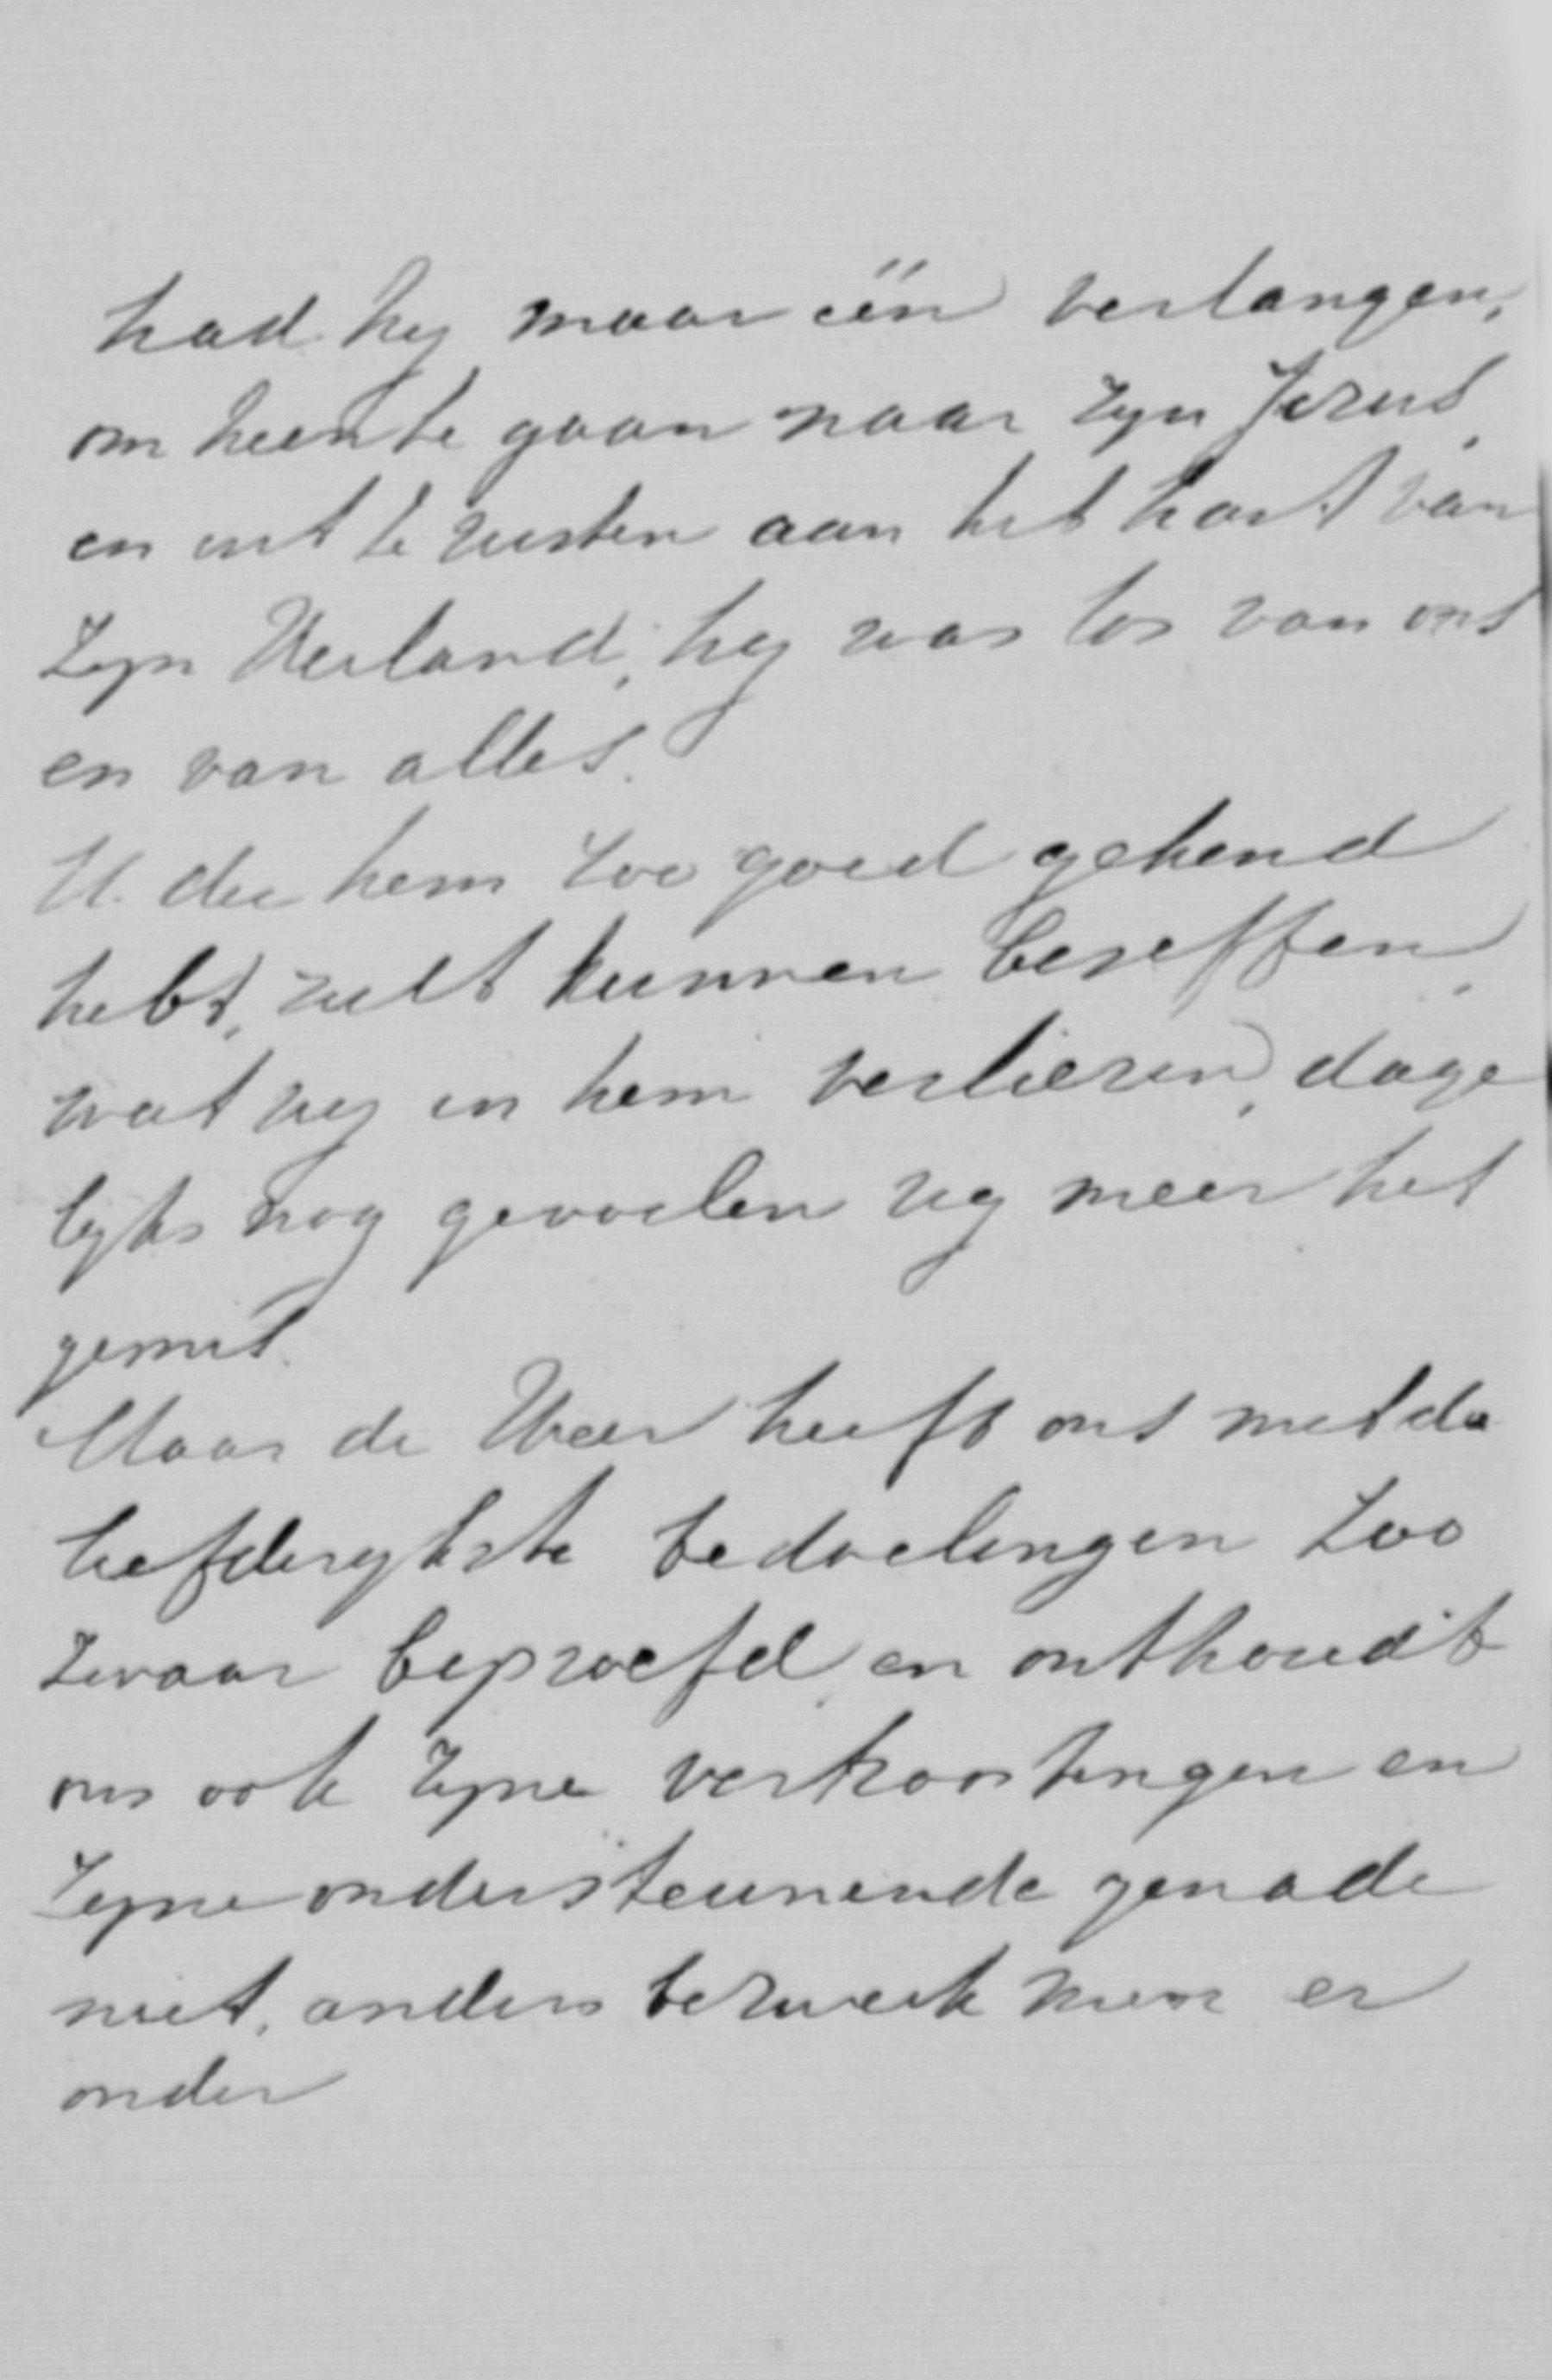 had hy maar één verlangen,
om heen te gaan naar zyn Jezus,
en uit te rusten aan het hart van
zyn Heiland, hy was los van ons
en van alles.
U die hem zoo goed gekend
hebt, zult kunnen beseffen,
wat wy in hem verliezen, dage
lyks nog gevoelen wy meer het
gemis.
Maar de Heer heeft ons met de
liefderykste bedoelingen zoo
zwaar beproefd, en onthoudt
ons ook zyne vertroostingen en
zyne ondersteunende genade
niet, anders bezweek men er
onder